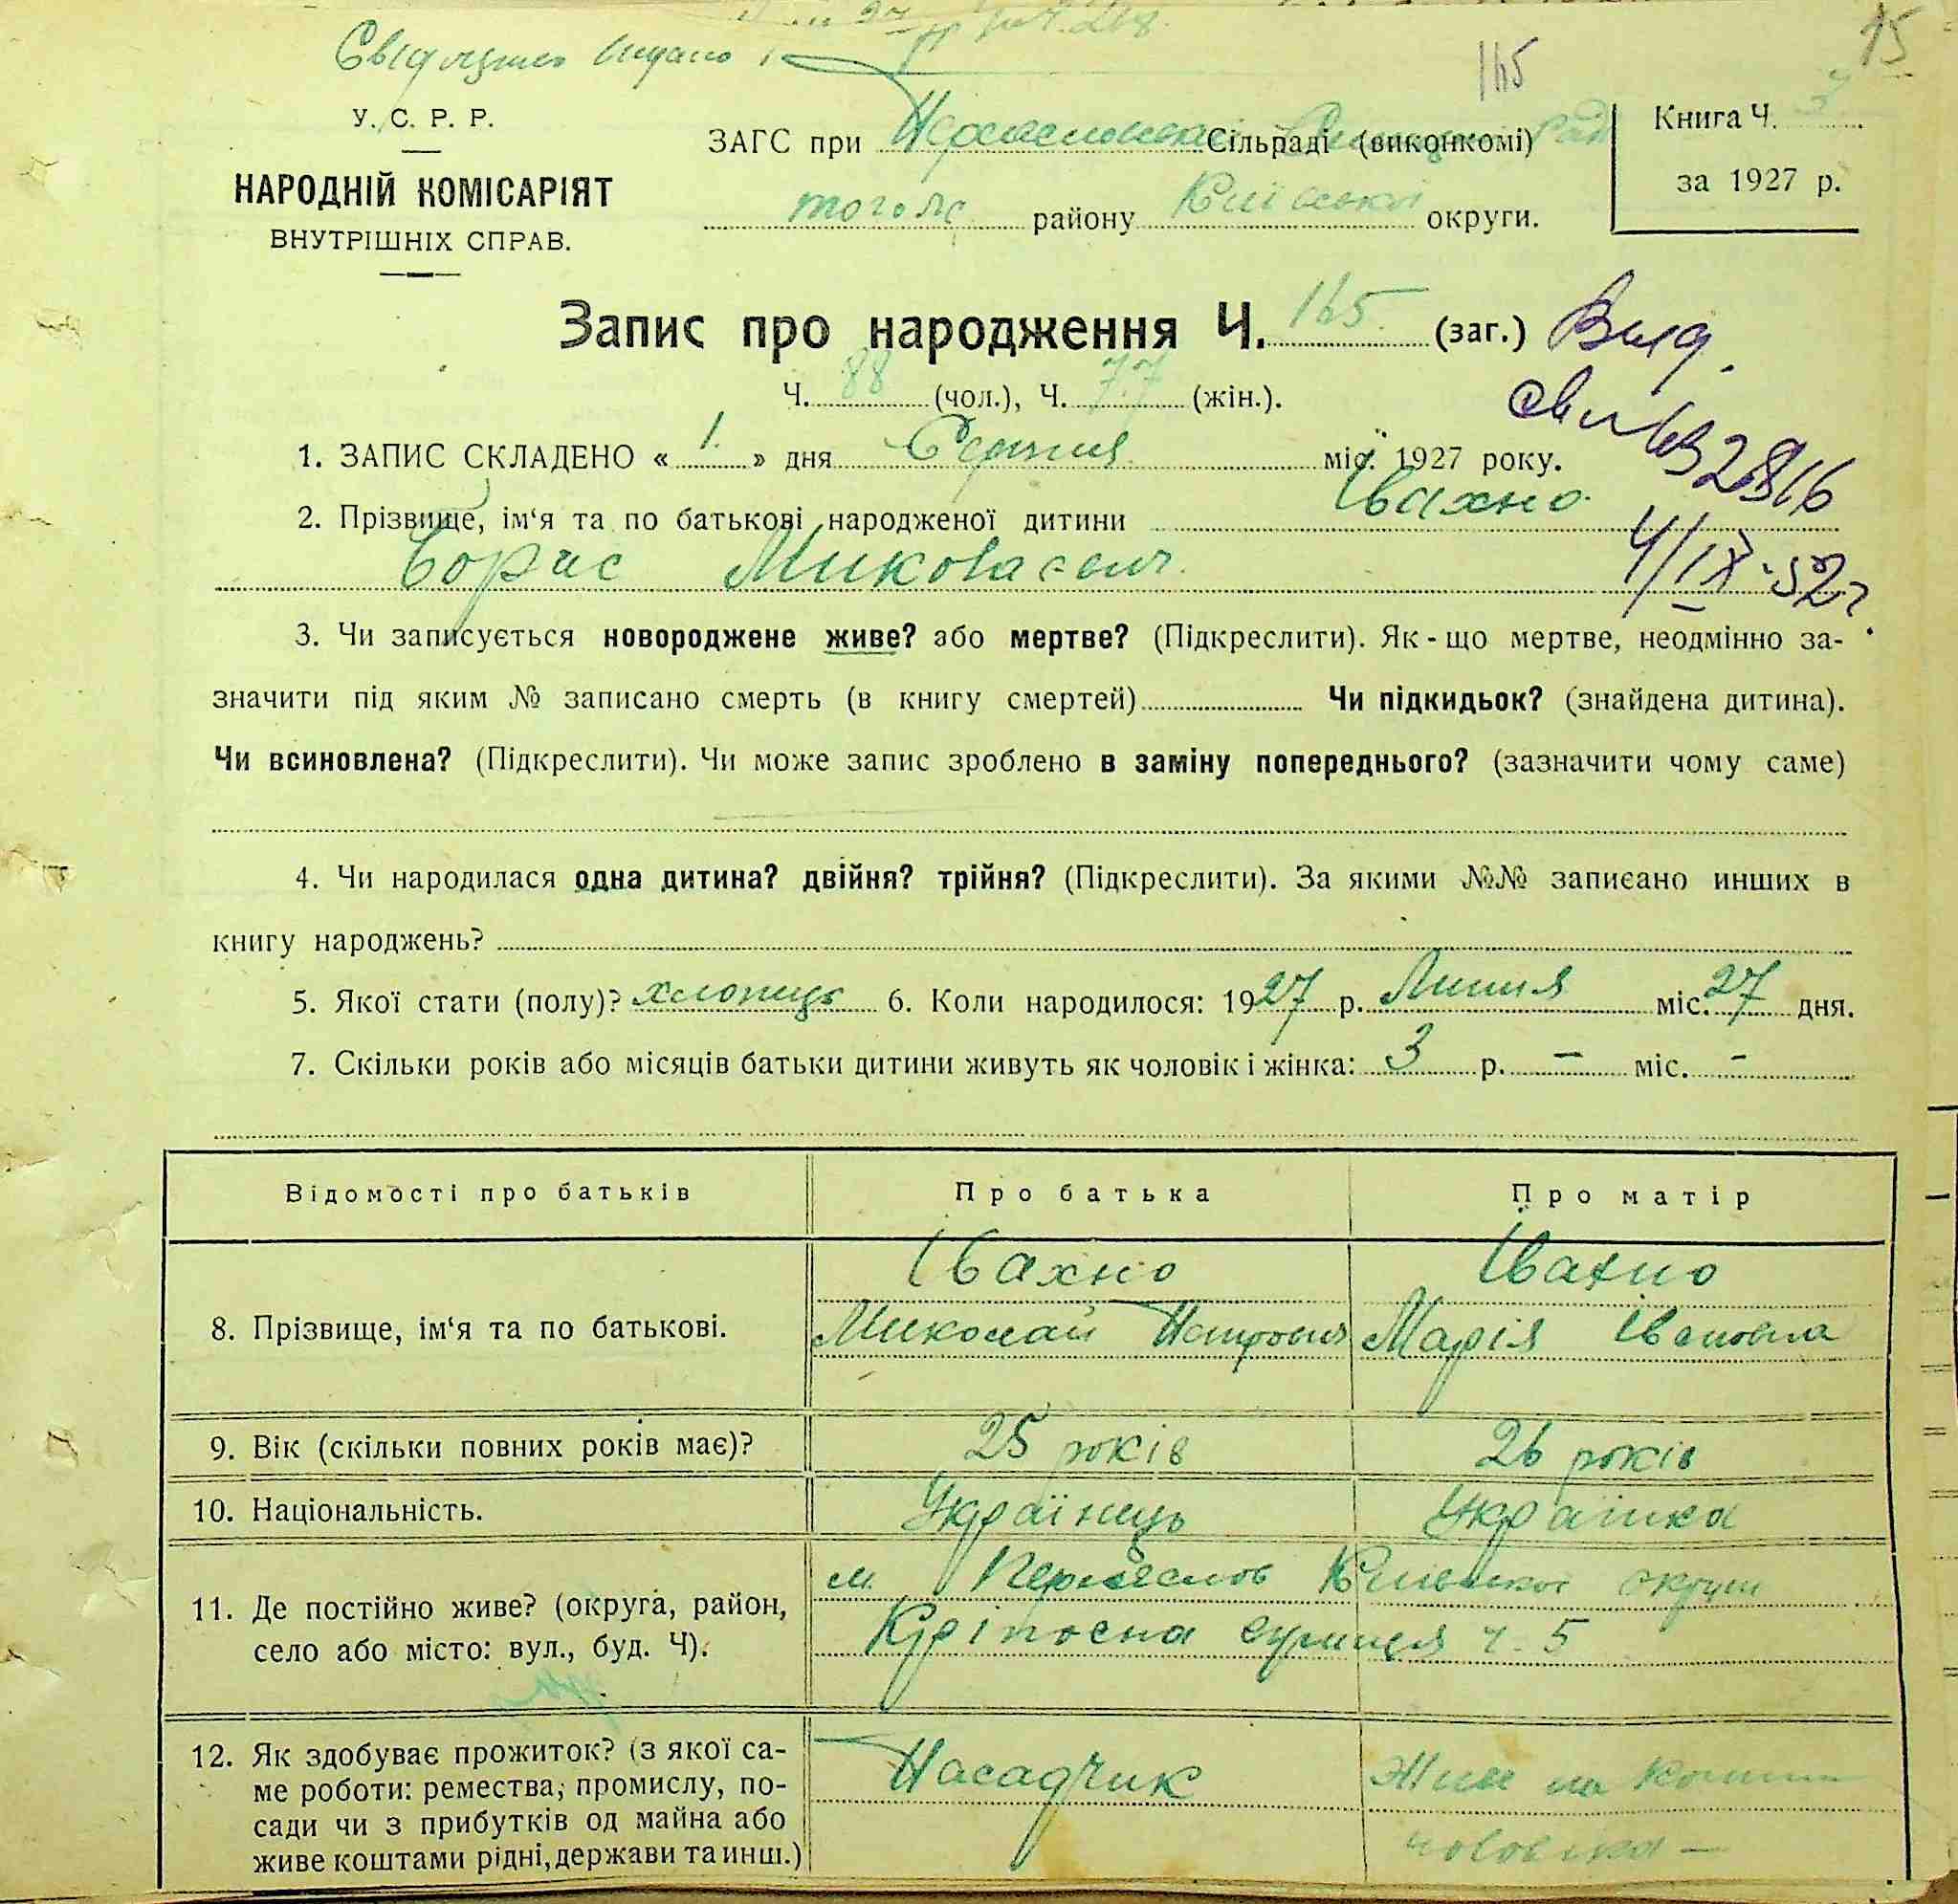 Свідоцтво видано
165
15
У. С. Р. Р.
НАРОДНІЙ КОМІСАРІЯТ
ВНУТРІШНІХ СПРАВ.
ЗАГС при Переяславській Сільраді (виконкомі)
того ж району Київської округи.
Книга Ч. 3
за 1927 р.
Запис про народження Ч. 165 (заг.)
Ч. 88 (чол.), Ч. 77 (жін.).
Вид.
4/IX-52 г
1. ЗАПИС СКЛАДЕНО « 1 » дня Серпня міс. 1927 року.
2. Прізвище, ім‘я та по батькові народженої дитини Івахно
Борис Миколаевич
3. Чи записується новороджене живе? або мертве? (Підкреслити). Як-що мертве, неодмінно за-
значити під яким № записано смерть (в книгу смертей) Чи підкидьок? (знайдена дитина).
Чи всиновлена? (Підкреслити). Чи може запис зроблено в заміну попереднього? (зазначити чому саме)
4. Чи народилася одна дитина? двійня? трійня? (Підкреслити). За якими №№ записано инших в
книгу народжень?
5. Якої стати (полу)? хлопець 6. Коли народилося: 1927 р. Липня міс. 27 дня.
7. Скільки років або місяців батьки дитини живуть як чоловік і жінка: 3 р. — міс. -
Відомості про батьків Про батька Про матір
8. Прізвище, ім‘я та по батькові. Івахно Миколай Петрович Івахно Марія Івановна
9. Вік (скільки повних років має)? 25 років 26 років
10. Національність. Українець Українка
11. Де постійно живе? (округа, район,
село або місто: вул., буд. Ч).
м. Переяслов Київської округи
Кріпосна вулиця ч. 5
12. Як здобуває прожиток? (з якої са-
ме роботи: ремества, промислу, по-
сади чи з прибутків од майна або
живе коштами рідні, держави та инш.)
Посадчик
Живе на кошти
чоловіка —